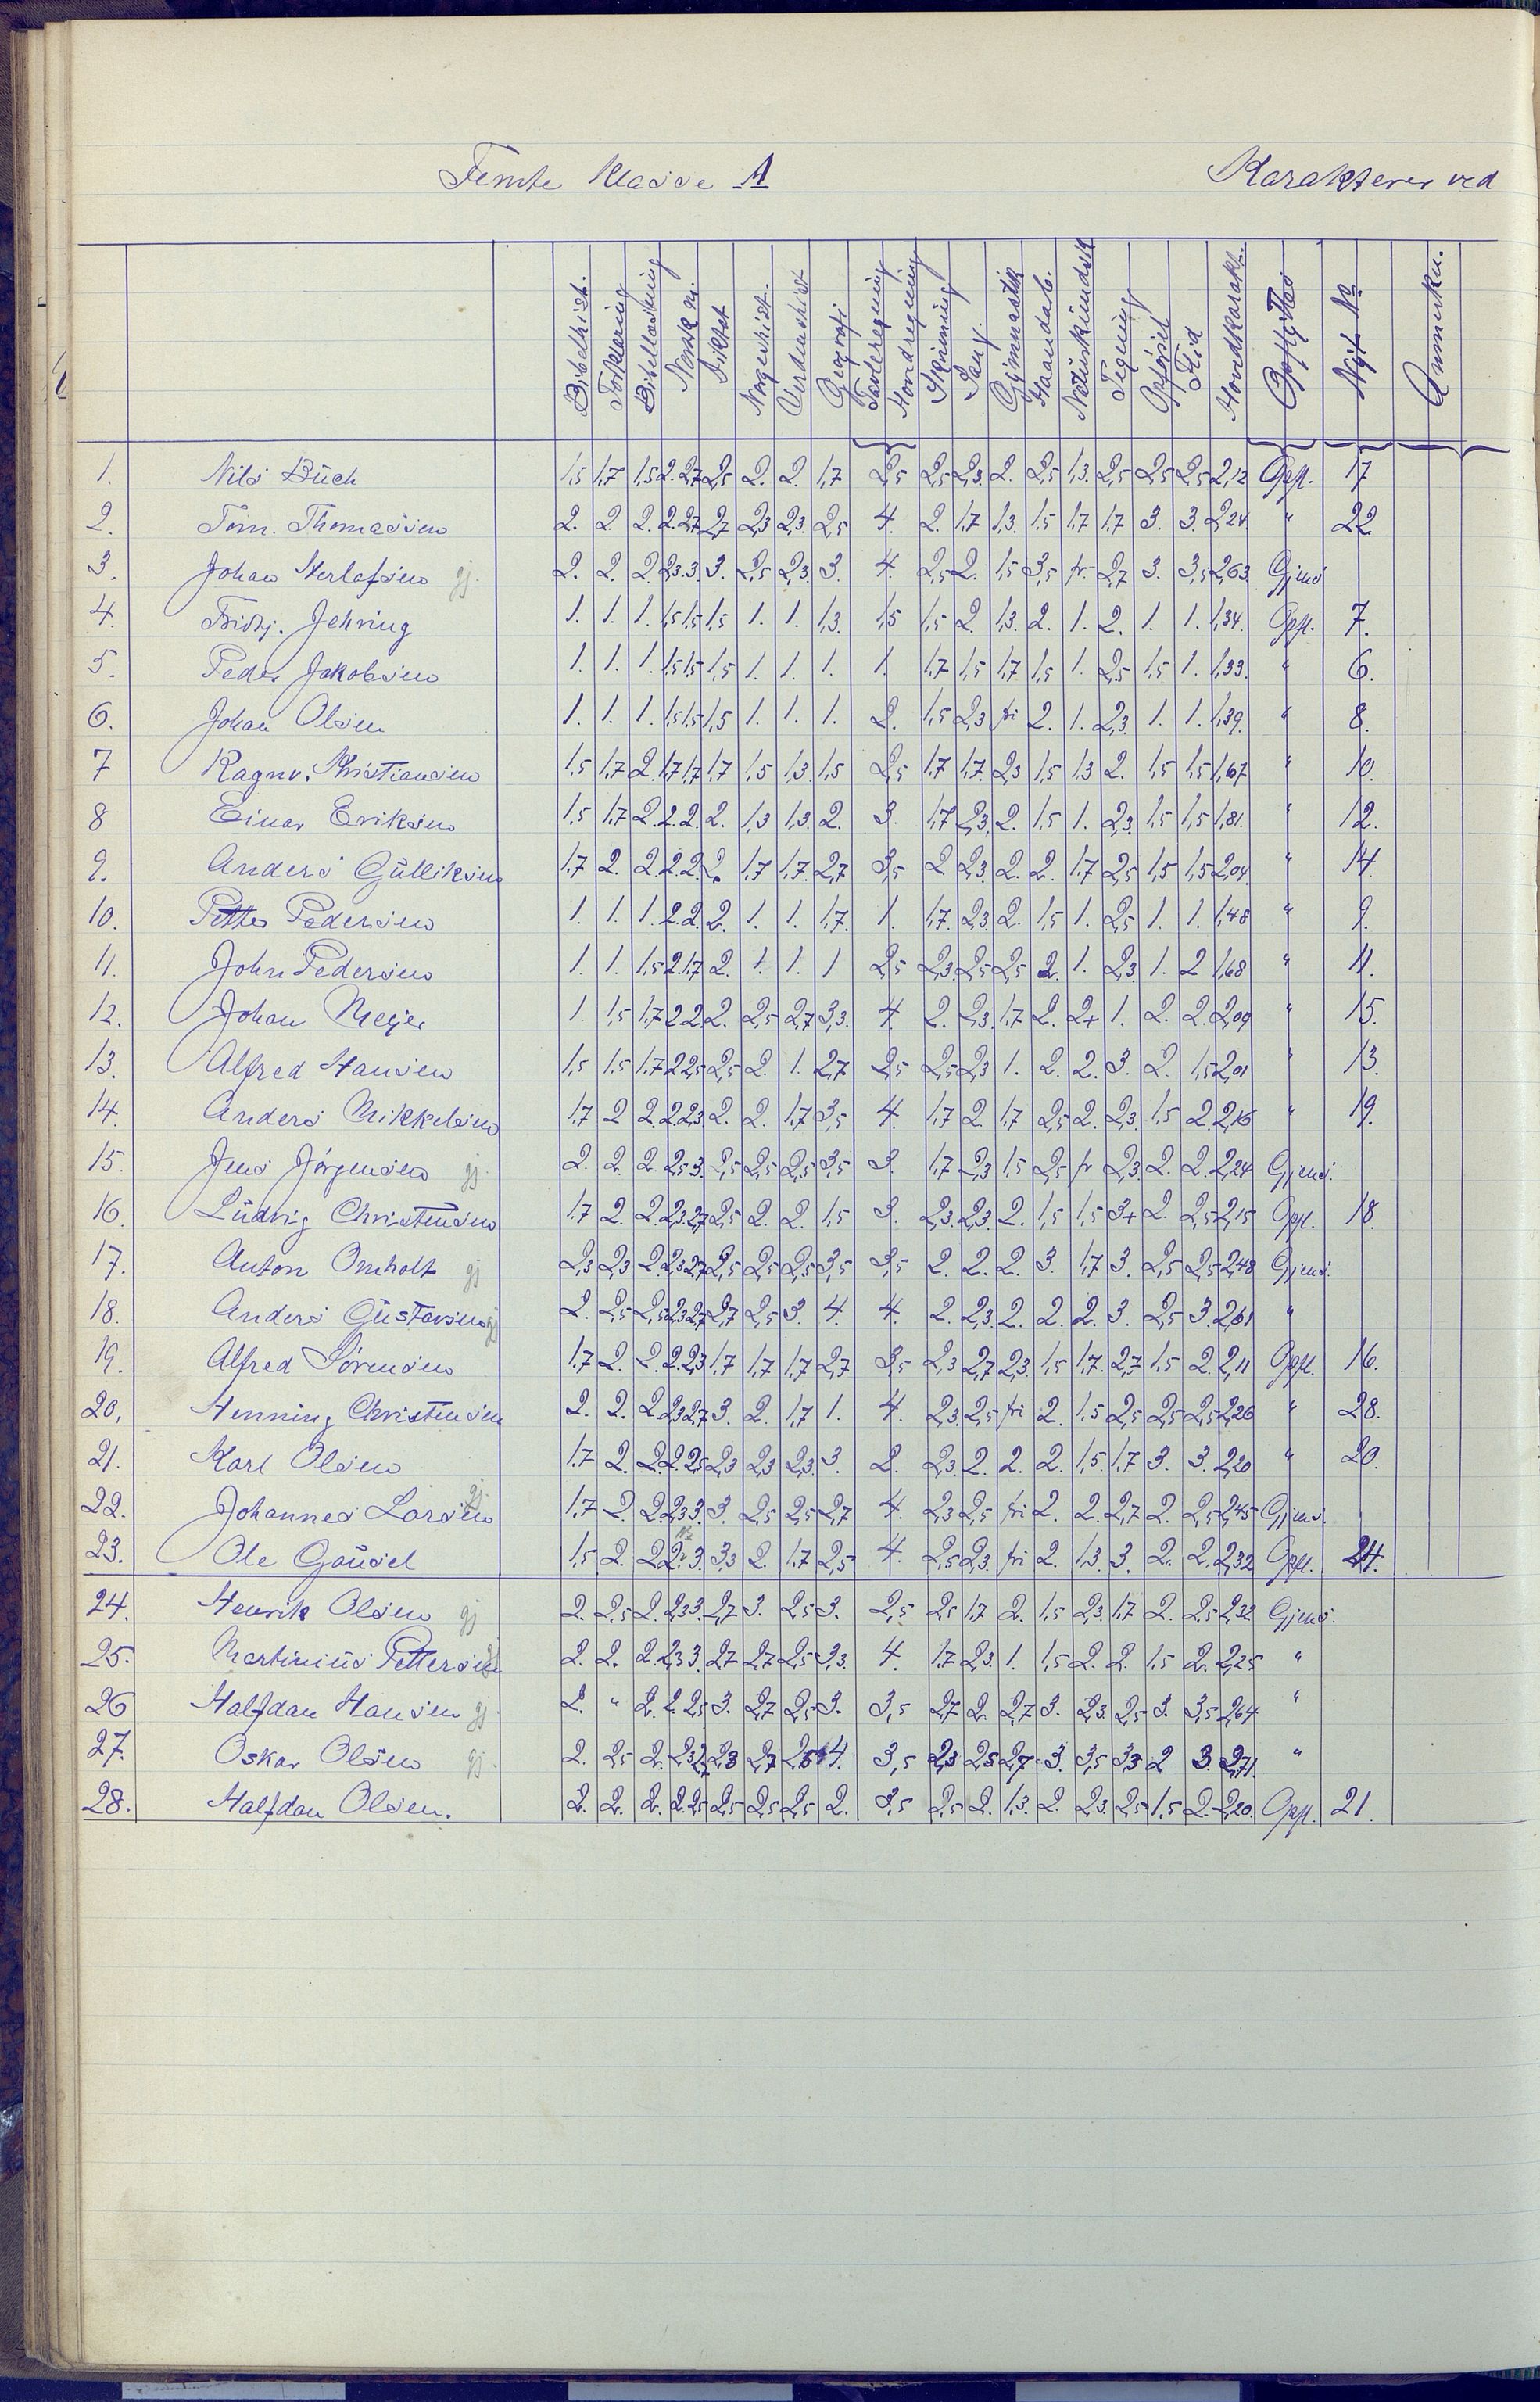 Femte Klasse A
Karakterer ved
Bibelhist. Forklaring Bibellæsning Norsk m. Diktat Norgeshist. Verdenshist Geografi Tavleregning Hovedregning Skrivning Sang. Gymnastik Haandarb. Naturkundsk Tegning Opførsel Flid Hovedkarakt. Opflyttes Nyt No Anmerkn.
1. Nils Büch 1,5 1,7 1,5 2. 2,7 2,5 2. 2. 1,7 2,5 2,5 2,3. 2. 2,5 1,3. 2,5 2,5 2,5 2,12 Opfl. 17
2. Tom. Thomassen 2. 2. 2. 2. 2,7 2,7 2,3 2,3. 2,5 4. 2. 1,7 1,3. 1,5 1,7 1,7 3. 3. 2,24. " 22
3. Johan Herlofsen gj. 2. 2. 2. 2,3. 3. 3. 2,5 2,3. 3. 4. 2,5 2. 1,5 3,5 fr. 2,7 3. 3,5 2,63. Gjens
4. Fridtj. Jehring 1. 1. 1. 1,5 1,5 1,5 1. 1. 1,3. 1,5 1,5 2. 1,3. 2. 1. 2. 1. 1. 1,34. Opfl. 7.
5. Peder Jakobsen 1. 1. 1. 1,5 1,5 1,5 1. 1. 1. 1. 1,7 1,5 1,7 1,5 1. 2,5 1,5 1. 1,33. " 6.
6. Johan Olsen 1. 1. 1. 1,5 1,5 1,5 1. 1. 1. 2. 1,5 2,3 fri 2. 1. 2,3. 1. 1. 1,39. " 8.
7 Ragnv. Kristiansen 1,5 1,7 2. 1,7 1,7 1,7 1,5 1,3. 1,5 2,5 1,7 1,7. 2,3 1,5 1,3 2. 1,5 1,5 1,67 " 10.
8 Einar Eriksen 1,5 1,7 2. 2. 2. 2. 1,3 1,3. 2. 3. 1,7 2,3. 2. 1,5 1. 2,3. 1,5 1,5 1,81. " 12.
9. Anders Gulliksen 1,7 2. 2. 2. 2. 2. 1,7 1,7. 2,7 3,5 2. 2,3. 2. 2. 1,7 2,5 1,5 1,5 2,04. " 14.
10. Petter Pedersen 1. 1. 1. 2. 2. 2. 1. 1. 1,7. 1. 1,7. 2,3. 2. 1,5 1. 2,5 1. 1. 1,48 " 9.
11. John Pedersen 1. 1. 1,5 2. 1,7 2. 1. 1. 1 2,5 2,3. 2,5 2,5 2. 1. 2,3. 1. 2 1,68 " 11.
12. Johan Meyer 1. 1,5 1,7 2 2. 2. 2,5 2,7 3,3. 4. 2. 2,3. 1,7 2. 2+ 1. 2. 2. 2,09 " 15.
13. Alfred Hansen 1,5 1,5 1,7 2 2,5 2,5 2. 1. 2,7 2,5 2,5 2,3 1. 2. 2. 3. 2. 1,5 2,01 " 13.
14. Anders Mikkelsen 1,7 2 2. 2. 2,3. 2. 2. 1,7 3,5 4. 1,7 2. 1,7 2,5 2. 2,3 1,5 2. 2,16 " 19.
15. Jens Jørgensen gj. 2. 2. 2. 2,5 3. 2,5 2,5 2,5 3,5 3. 1,7 2,3 1,5 2,5 fr 2,3. 2. 2. 2,24 Gjens.
16. Ludvig Christensen 1,7 2. 2. 2,3. 2,7 2,5 2. 2. 1,5 3. 2,3. 2,3. 2. 1,5 1,5 3+ 2. 2,5 2,15 Opfl. 18.
17. Anton Omholt gj 2,3 2,3. 2. 2,3 2,7 2,5 2,5 2,5 3,5 3,5 2. 2. 2. 3. 1,7 3. 2,5 2,5 2,48 Gjens.
18. Anders Gustavsen gj 2. 2,5 2,5 2,3 2,7 2,7 2,5 3. 4. 4. 2. 2,3. 2. 2. 2. 3. 2,5 3. 2,61 "
19. Alfred Sørensen 1,7 2. 2. 2. 2,3 1,7 1,7 1,7 2,7 3,5 2,3 2,7 2,3. 1,5 1,7. 2,7 1,5 2. 2,11 Opfl. 16.
20. Henning Christensen 2. 2. 2. 2,3 2,7 3. 2. 1,7 1. 4. 2,3. 2,5 fri 2. 1,5 2,5 2,5 2,5 2,26 " 28.
21. Karl Olsen 1,7 2. 2. 2. 2,5 2,3 2,3 2,3. 3. 2. 2,3. 2. 2. 2. 1,5. 1,7 3. 3. 2,20 " 20.
22. Johannes Larsen gj. 1,7 2. 2. 2,3 3. 3. 2,5 2,5 2,7 4. 2,3 2,5 fri 2. 2. 2,7 2. 2,5 2,45 Gjens.
23. Ole Gausel 1,5 2. 2. 2. 3. 3,3 2. 1,7 2,5 4. 2,5 2,3. fri 2. 1,3 3. 2. 2. 2,32 Opfl. 24.
24. Henrik Olsen gj 2. 2,5 2. 2,3 3. 2,7 3. 2,5 3. 2,5 2,5 1,7 2. 1,5 2,3. 1,7 2. 2,5 2,32 Gjens.
25. Martinius Pettersen gj 2. 2. 2. 2,3 3. 2,7 2,7 2,5 3,3. 4. 1,7 2,3. 1. 1,5 2. 2. 1,5 2. 2,25 "
26 Halfdan Hansen gj 2. " 2. 2. 2,5 3. 2,7 2,5 3. 3,5 2,7 2. 2,7 3. 2,3. 2,5 3. 3,5 2,64 "
27. Oskar Olsen gj. 2. 2,5 2. 2,3 2,7 2,3 2,7 4. 3,5 2,3 2,3 2,7 3. 3,5 3,3 2 3 2,71. "
28. Halfdan Olsen. 2. 2. 2. 2. 2,5 2,5 2,5 2,5 2. 3,5 2,5 2. 1,3. 2. 2,3. 2,5 1,5 2. 2,20. Opfl. 21.